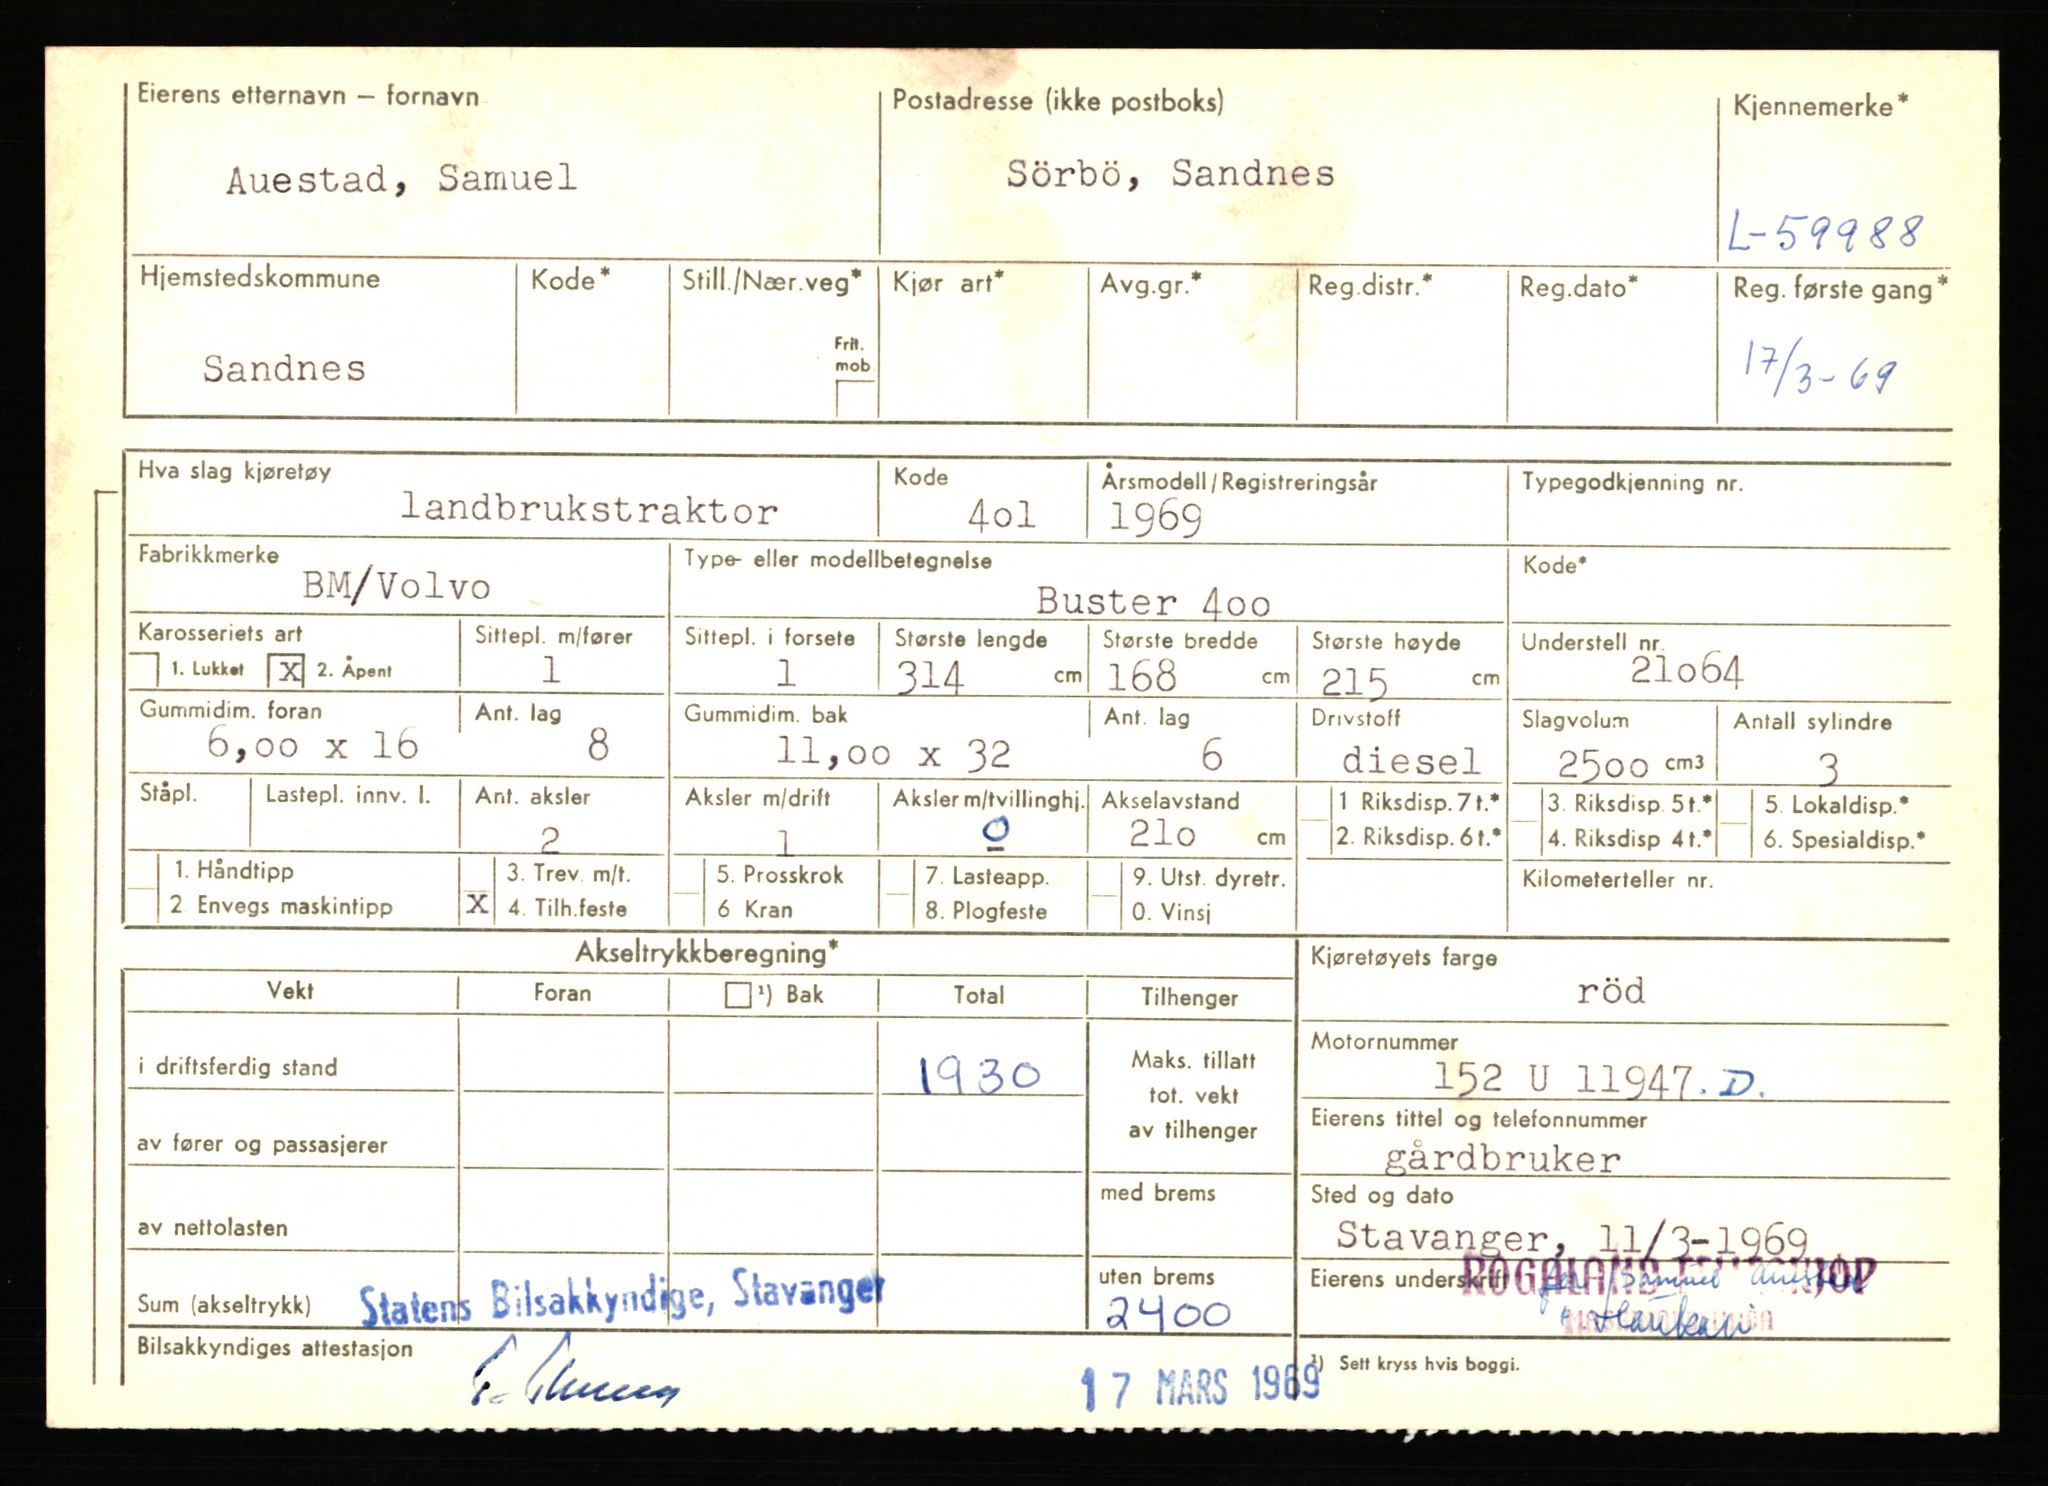 Eierens etternavn – fornavn
Postadresse (ikke postboks)
Kjennemerke*
Auestad, Samuel
Sörbö, Sandnes
L-59988
Hjemstedskommune
Kode*
Still./Nær.veg*
Kjør art*
Avg.gr.*
Reg.distr.*
Reg.dato*
Reg. første gang*
Frit. mob
Sandnes
17/3-69
Hva slag kjøretøy
Kode
Årsmodell/Registreringsår
Typegodkjenning nr.
landbrukstraktor
4o1
1969
Fabrikkmerke
Type- eller modellbetegnelse
Kode*
BM/Volvo
Buster 4oo
Karosseriets art
Sittepl. m/fører
Sittepl. i forsete
Største lengde
Største bredde
Største høyde
Understell nr.
1. Lukket
X
2. Åpent
1
1
314 cm
168 cm
215 cm
21o64
Gummidim. foran
Ant. lag
Gummidim. bak
Ant. lag
Drivstoff
Slagvolum
Antall sylindre
6,oo x 16
8
11,oo x 32
6
diesel
25oo cm3
3
Ståpl.
Lastepl. innv. l.
Ant. aksler
Aksler m/drift
Aksler m/tvillinghj.
Akselavstand
1 Riksdisp. 7 t.*
3. Riksdisp. 5 t.*
5. Lokaldisp.*
2
1
0
21o cm
2. Riksdisp. 6 t.*
4. Riksdisp 4 t.*
6. Spesialdisp.*
1. Håndtipp
3. Trev. m/t.
5. Prosskrok
7. Lasteapp.
9. Utst. dyretr.
Kilometerteller nr.
2. Envegs maskintipp
X
4. Tilh.feste
6 Kran
8. Plogfeste
0. Vinsj
Akseltrykkberegning*
Kjøretøyets farge
röd
Vekt
Foran
¹) Bak
Total
Tilhenger
i driftsferdig stand
1930
Maks. tillatt
tot. vekt
av tilhenger
Motornummer
152 U 11947. D.
av fører og passasjerer
Eierens tittel og telefonnummer
gårdbruker
med brems
Sted og dato
av nettolasten
Stavanger, 11/3-1969
uten brems
Eierens underskrift
Samuel
Sum (akseltrykk)
Statens Bilsakkyndige, Stavanger
2400
Bilsakkyndiges attestasjon
17 MARS 1969
¹) Sett kryss hvis boggi.